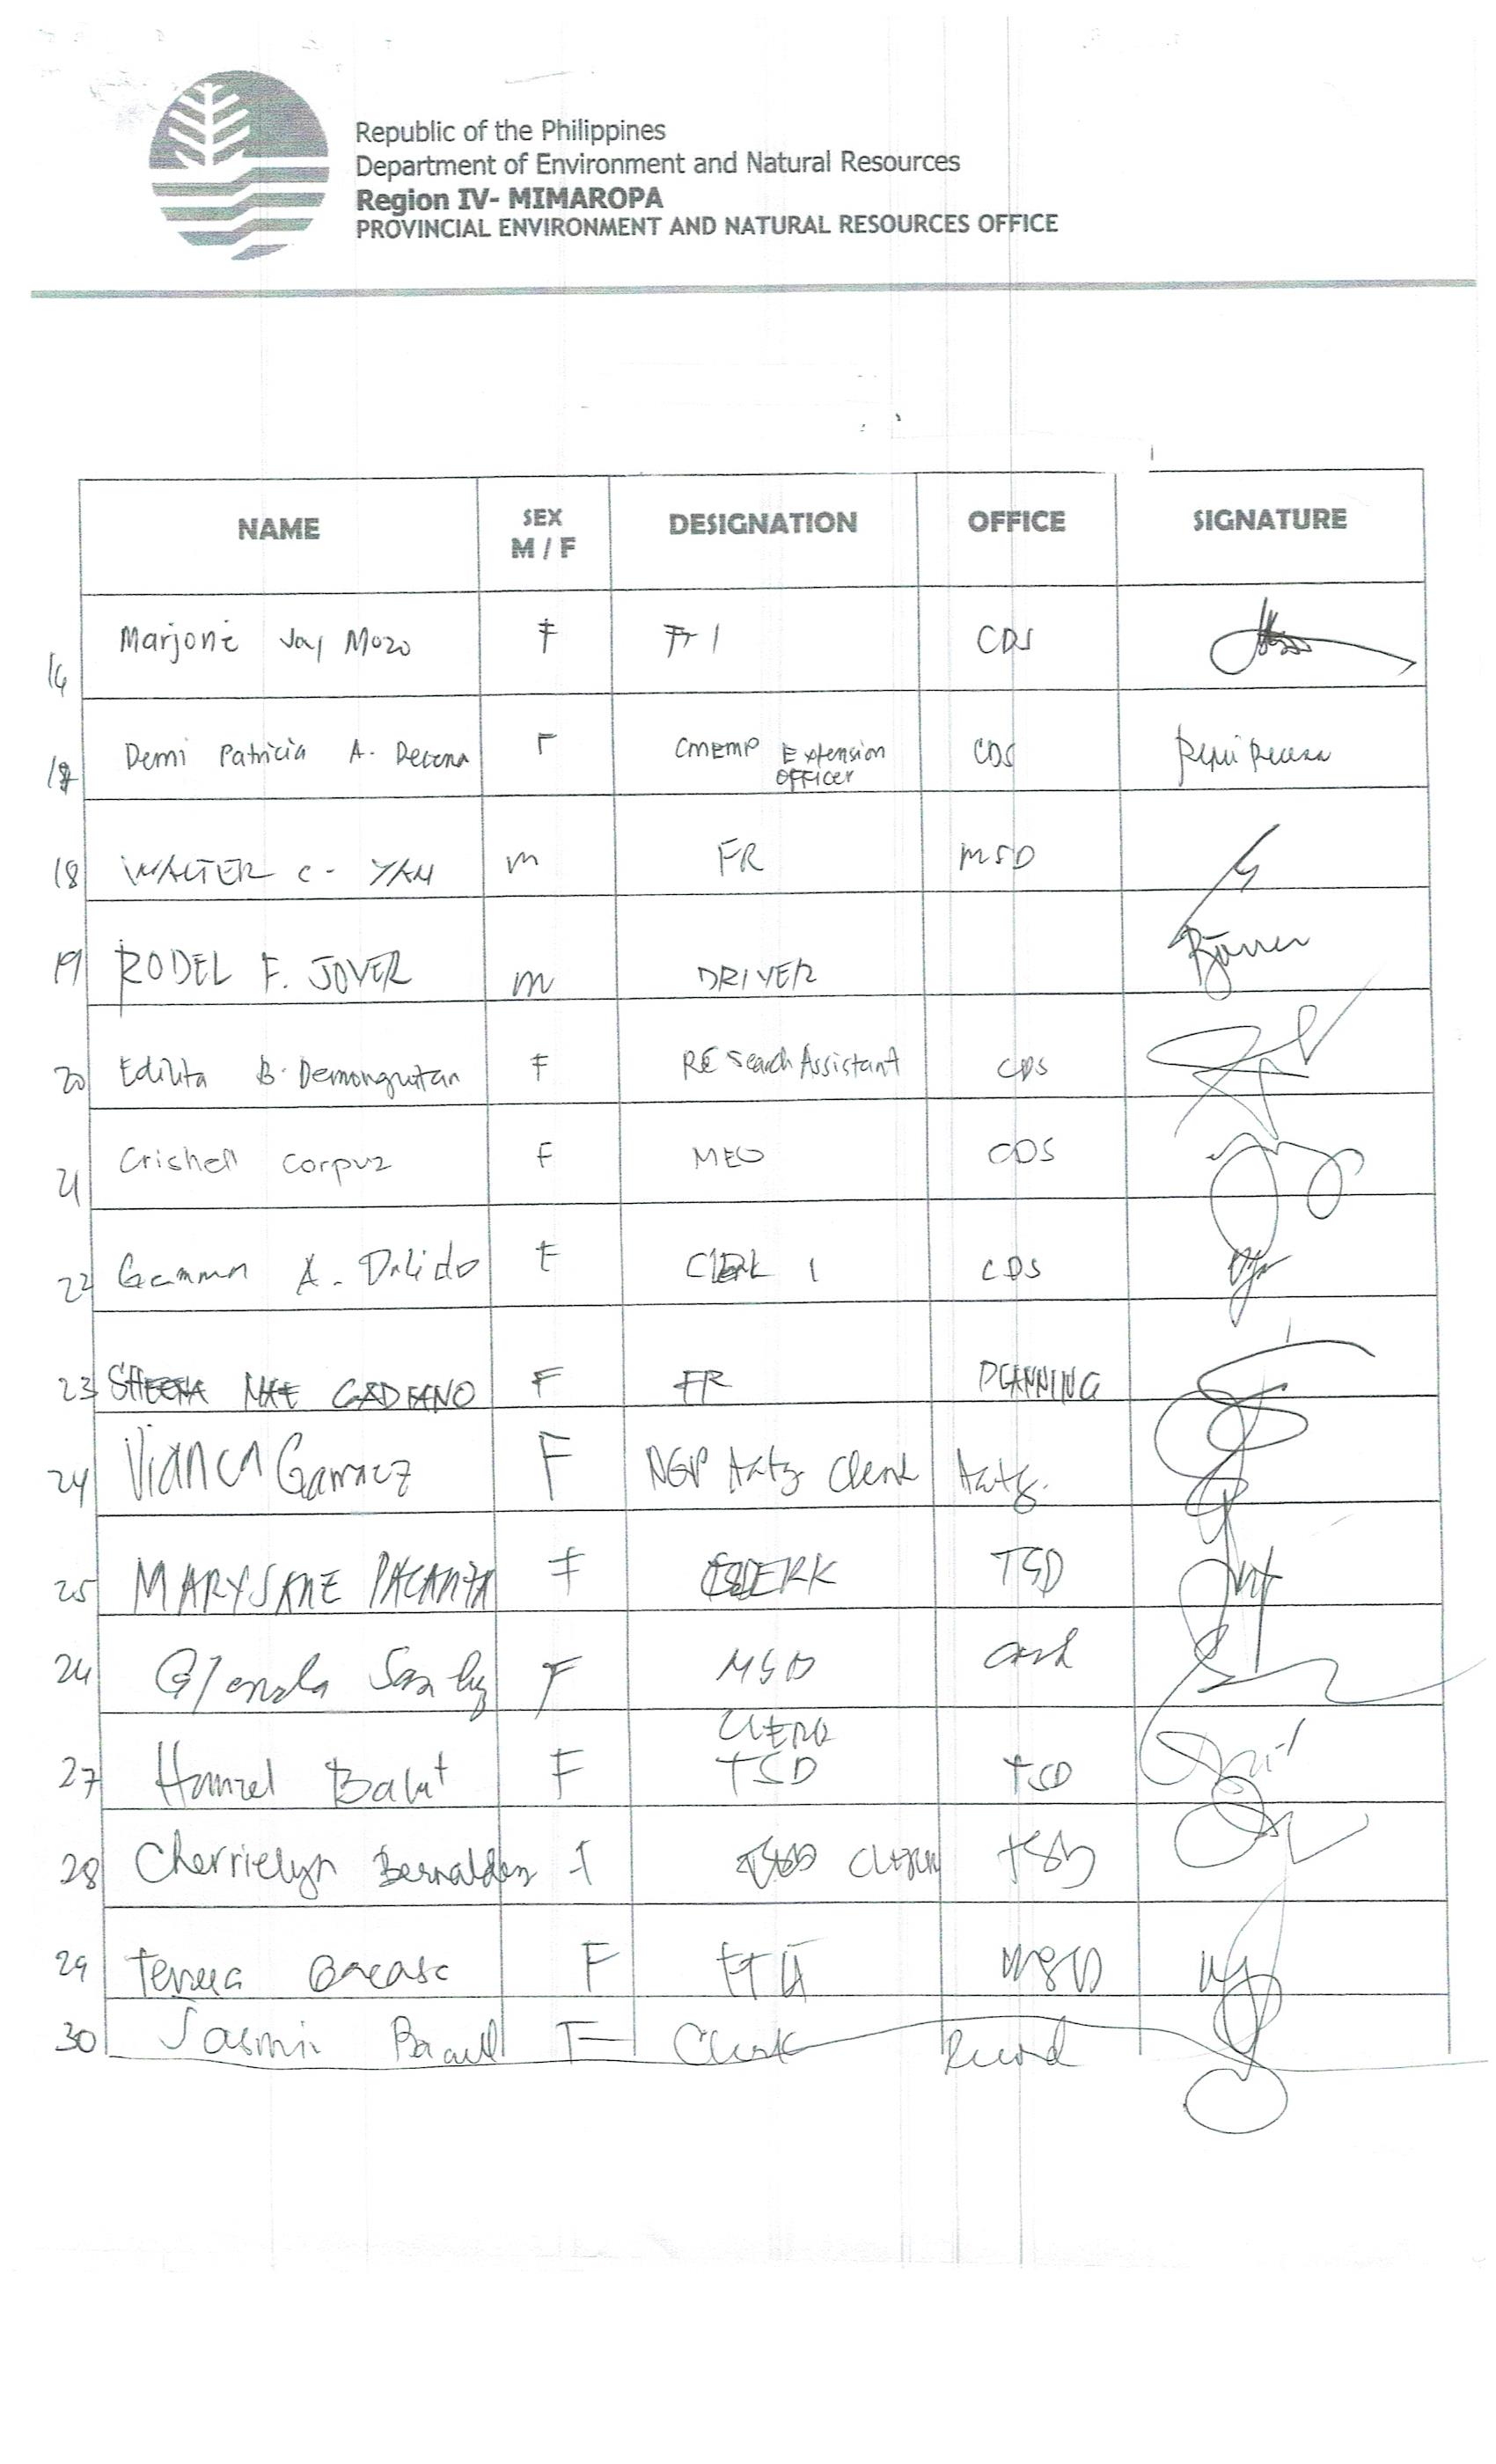 Republic of the Philippines
Department of Environment and Natural Resources
Region IV- MIMAROPA
PROVINCIAL ENVIRONMENT AND NATURAL RESOURCES OFFICE
NAME SEX M / F DESIGNATION OFFICE SIGNATURE
16 Marjorie Joy Mozo F FT 1 CDS
17 Demi Patricia A. Decena F CMEMP Extension Officer CDS
18 WALTER C. YAM M FR MSD
19 RODEL F. JOVER M DRIVER
20 Edilita B. Demonguitan F REsearch Assistant CDS
21 Crishell Corpuz F MEO CDS
22 Gemma A. Dalido F Clerk 1 CDS
23 SHEENA MAE GADIANO F FR PLANNING
24 Vianca F NGP Actg Clerk Actg.
25 MARYJANE F CLERK TSD
26 Glenda F MSD Cash
27 F CLERK TSD TSD
28 Cherrielyn Bernaldez F TSD CLERK TSD
29 F MSD
30 Jasmin F Clerk Record